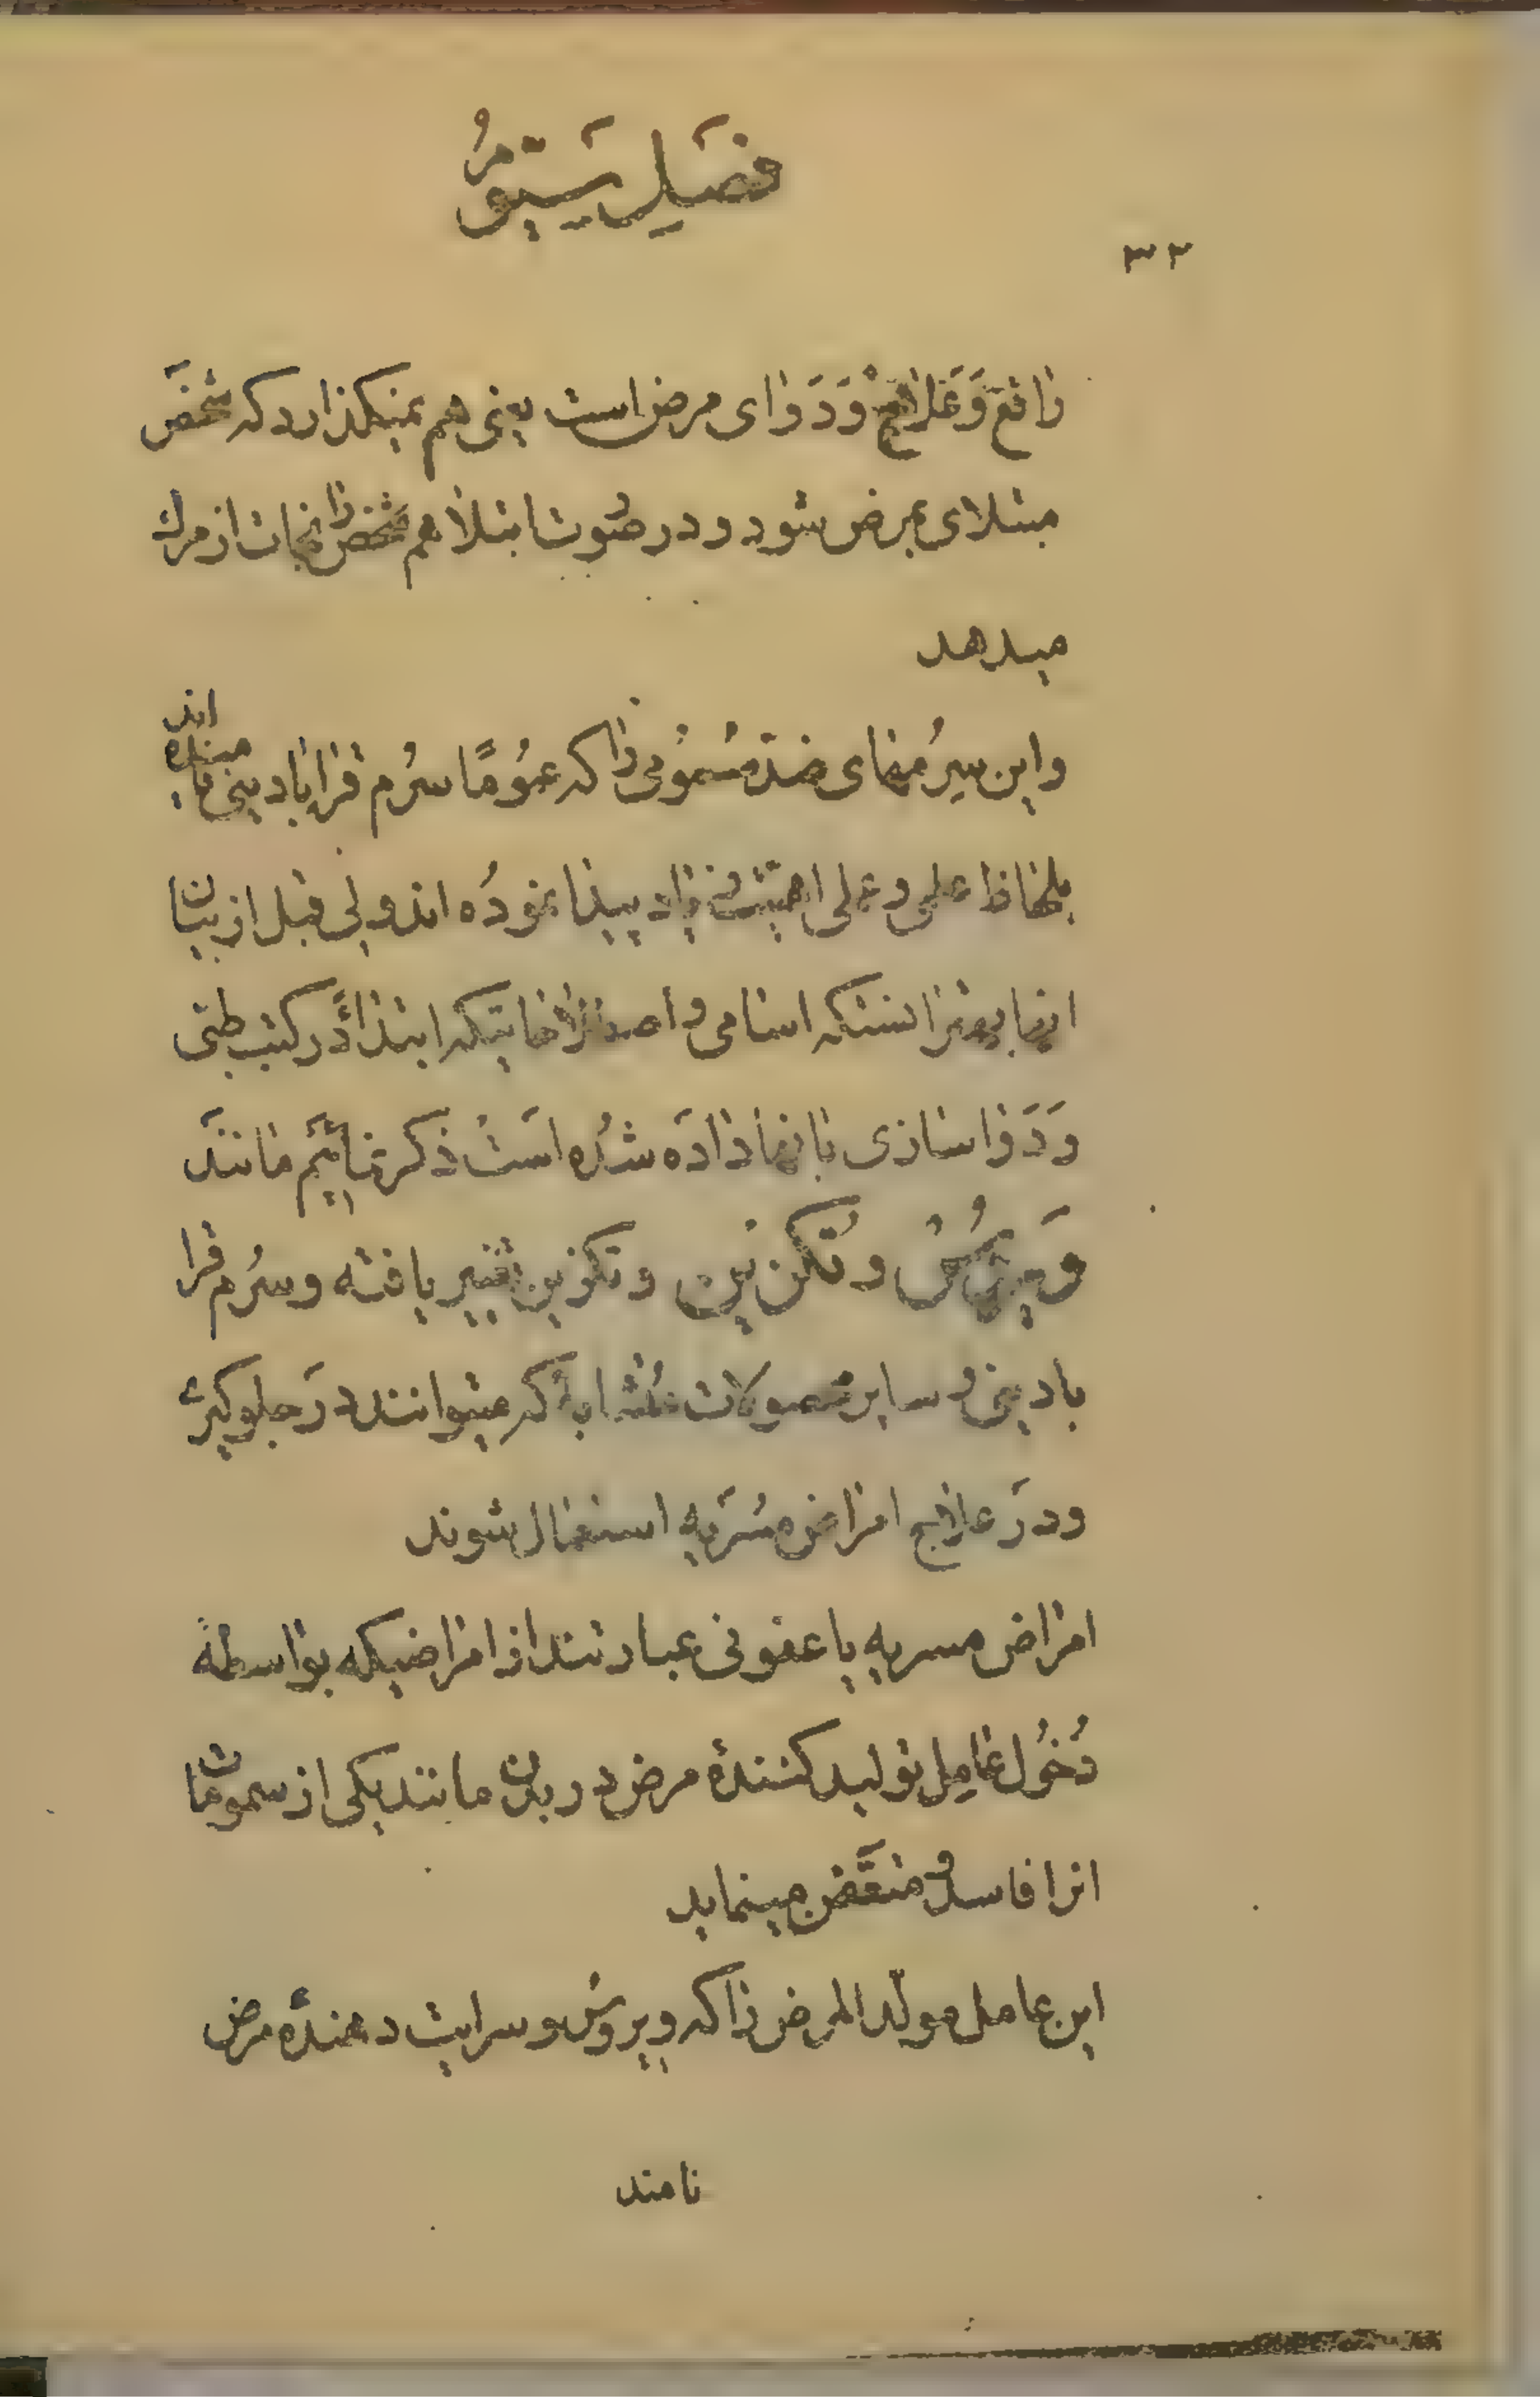 فصل سیّوم
۳۲
رافع و علاج و دوای مرض است یعنی هم نمیگذارد که شخص
مبتلای بمرض شود و در صورت ابتلا هم شخص را نجات از مرگ
میدهد
و این سیرمهای ضدّ سمومی را که عموماً سرم قرابادینی مینامند
بلحاظ علمی و عملی اهمیت زیاد پیدا نموده اند ولی قبل از بیان
اینها بهتر انستکه اسامی و اصطلاحاتیکه ابتداءً در کتب طبی
و دواسازی بانها داده شده است ذکر نمائیم مانند
ویروس و تکن نین و تکزین تغییر یافته و سرم قرا
بادینی و سایر محصولات مشابه که میتوانند در جلوگیری
و در علاج امراض مسریه استعمال شوند
امراض مسریه یا عفونی عبارتند از امراضیکه بواسطهٔ
دخول عامل تولید کنندهٔ مرض در بدن مانند یکی از سمومات
انرا فاسد و متعفّن مینماید
این عامل مولّد المرض را که ویروس و سرایت دهندهٔ مرض
نامند